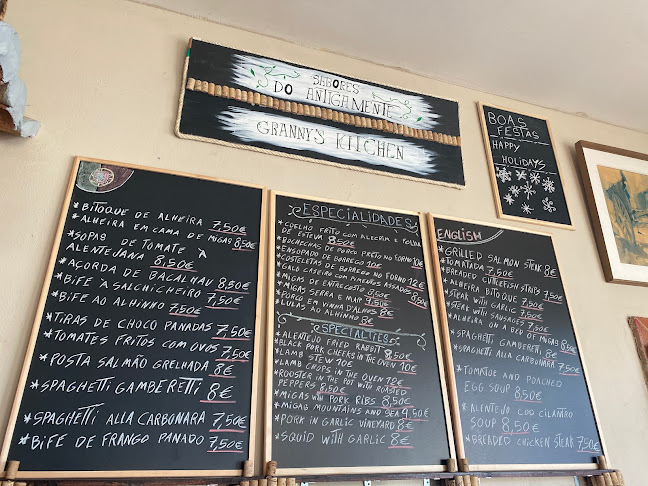 SABORES
DO ANTIGAMENTE
GRANNY'S KITCHEN
BOAS
FESTAS
HAPPY
HOLIDAYS
*BITOQUE DE ALHEIRA 7,50€
*ALHEIRA EM CAMA DE MIGAS 8,50€
*SOPAS DE TOMATE À
ALENTEJANA 8,50€
*AÇORDA DE BACALHAU 8,50€
*BIFE À SALCHICHEIRO 7,50€
*BIFE AO ALHINHO 7,50€
*TIRAS DE CHOCO PANADAS 7,50€
*TOMATES FRITOS COM OVOS 7,50€
*POSTA SALMÃO GRELHADA 8€
*SPAGHETTI GAMBERETTI 8€
*SPAGHETTI ALLA CARBONARA 7,50€
*BIFE DE FRANGO PANADO 7,50€
ESPECIALIDADES
*COELHO FRITO COM ALECRIM E FOLHA
DE ESTEVA 8,50€
*BOCHECHAS DE PORCO PRETO NO FORNO 10€
*ENSOPADO DE BORREGO 10€
*COSTELETAS DE BORREGO NO FORNO 12€
*GALO CASEIRO COM PIMENTOS ASSADOS 8,50€
*MIGAS DE ENTRECOSTO 8,50€
*MIGAS SERRA E MAR 9,50€
*PORCO EM VINHA D'ALHOS 8€
*LULAS AO ALHINHO 8€
SPECIALTIES
*ALENTEJO FRIED RABBIT 8,50€
*BLACK PORK CHEEKS IN THE OVEN 10€
*LAMB STEW 10€
*LAMB CHOPS IN THE OVEN 12€
*ROOSTER IN THE POT WITH ROASTED
PEPPERS 8,50€
*MIGAS WITH PORK RIBS 8,50€
*MIGAS MOUNTAINS AND SEA 9,50€
*PORK IN GARLIC VINEYARD 8€
*SQUID WITH GARLIC 8€
ENGLISH
*GRILLED SALMON STEAK 8€
*TOMATADA 7,50€
*BREADED CUTTLEFISH STRIPS 7,50€
*ALHEIRA BITOQUE 7,50€
*STEAK WITH GARLIC 7,50€
*STEAK WITH SAUSAGES 7,50€
*ALHEIRA ON A BED OF MIGAS 8,50€
*SPAGHETTI GAMBERETTI 8€
*SPAGHETTI ALLA CARBONARA 7,50€
*TOMATOE AND POACHED
EGG SOUP 8,50€
*ALENTEJO COD CILANTRO
SOUP 8,50€
*BREADED CHICKEN STEAK 7,50€